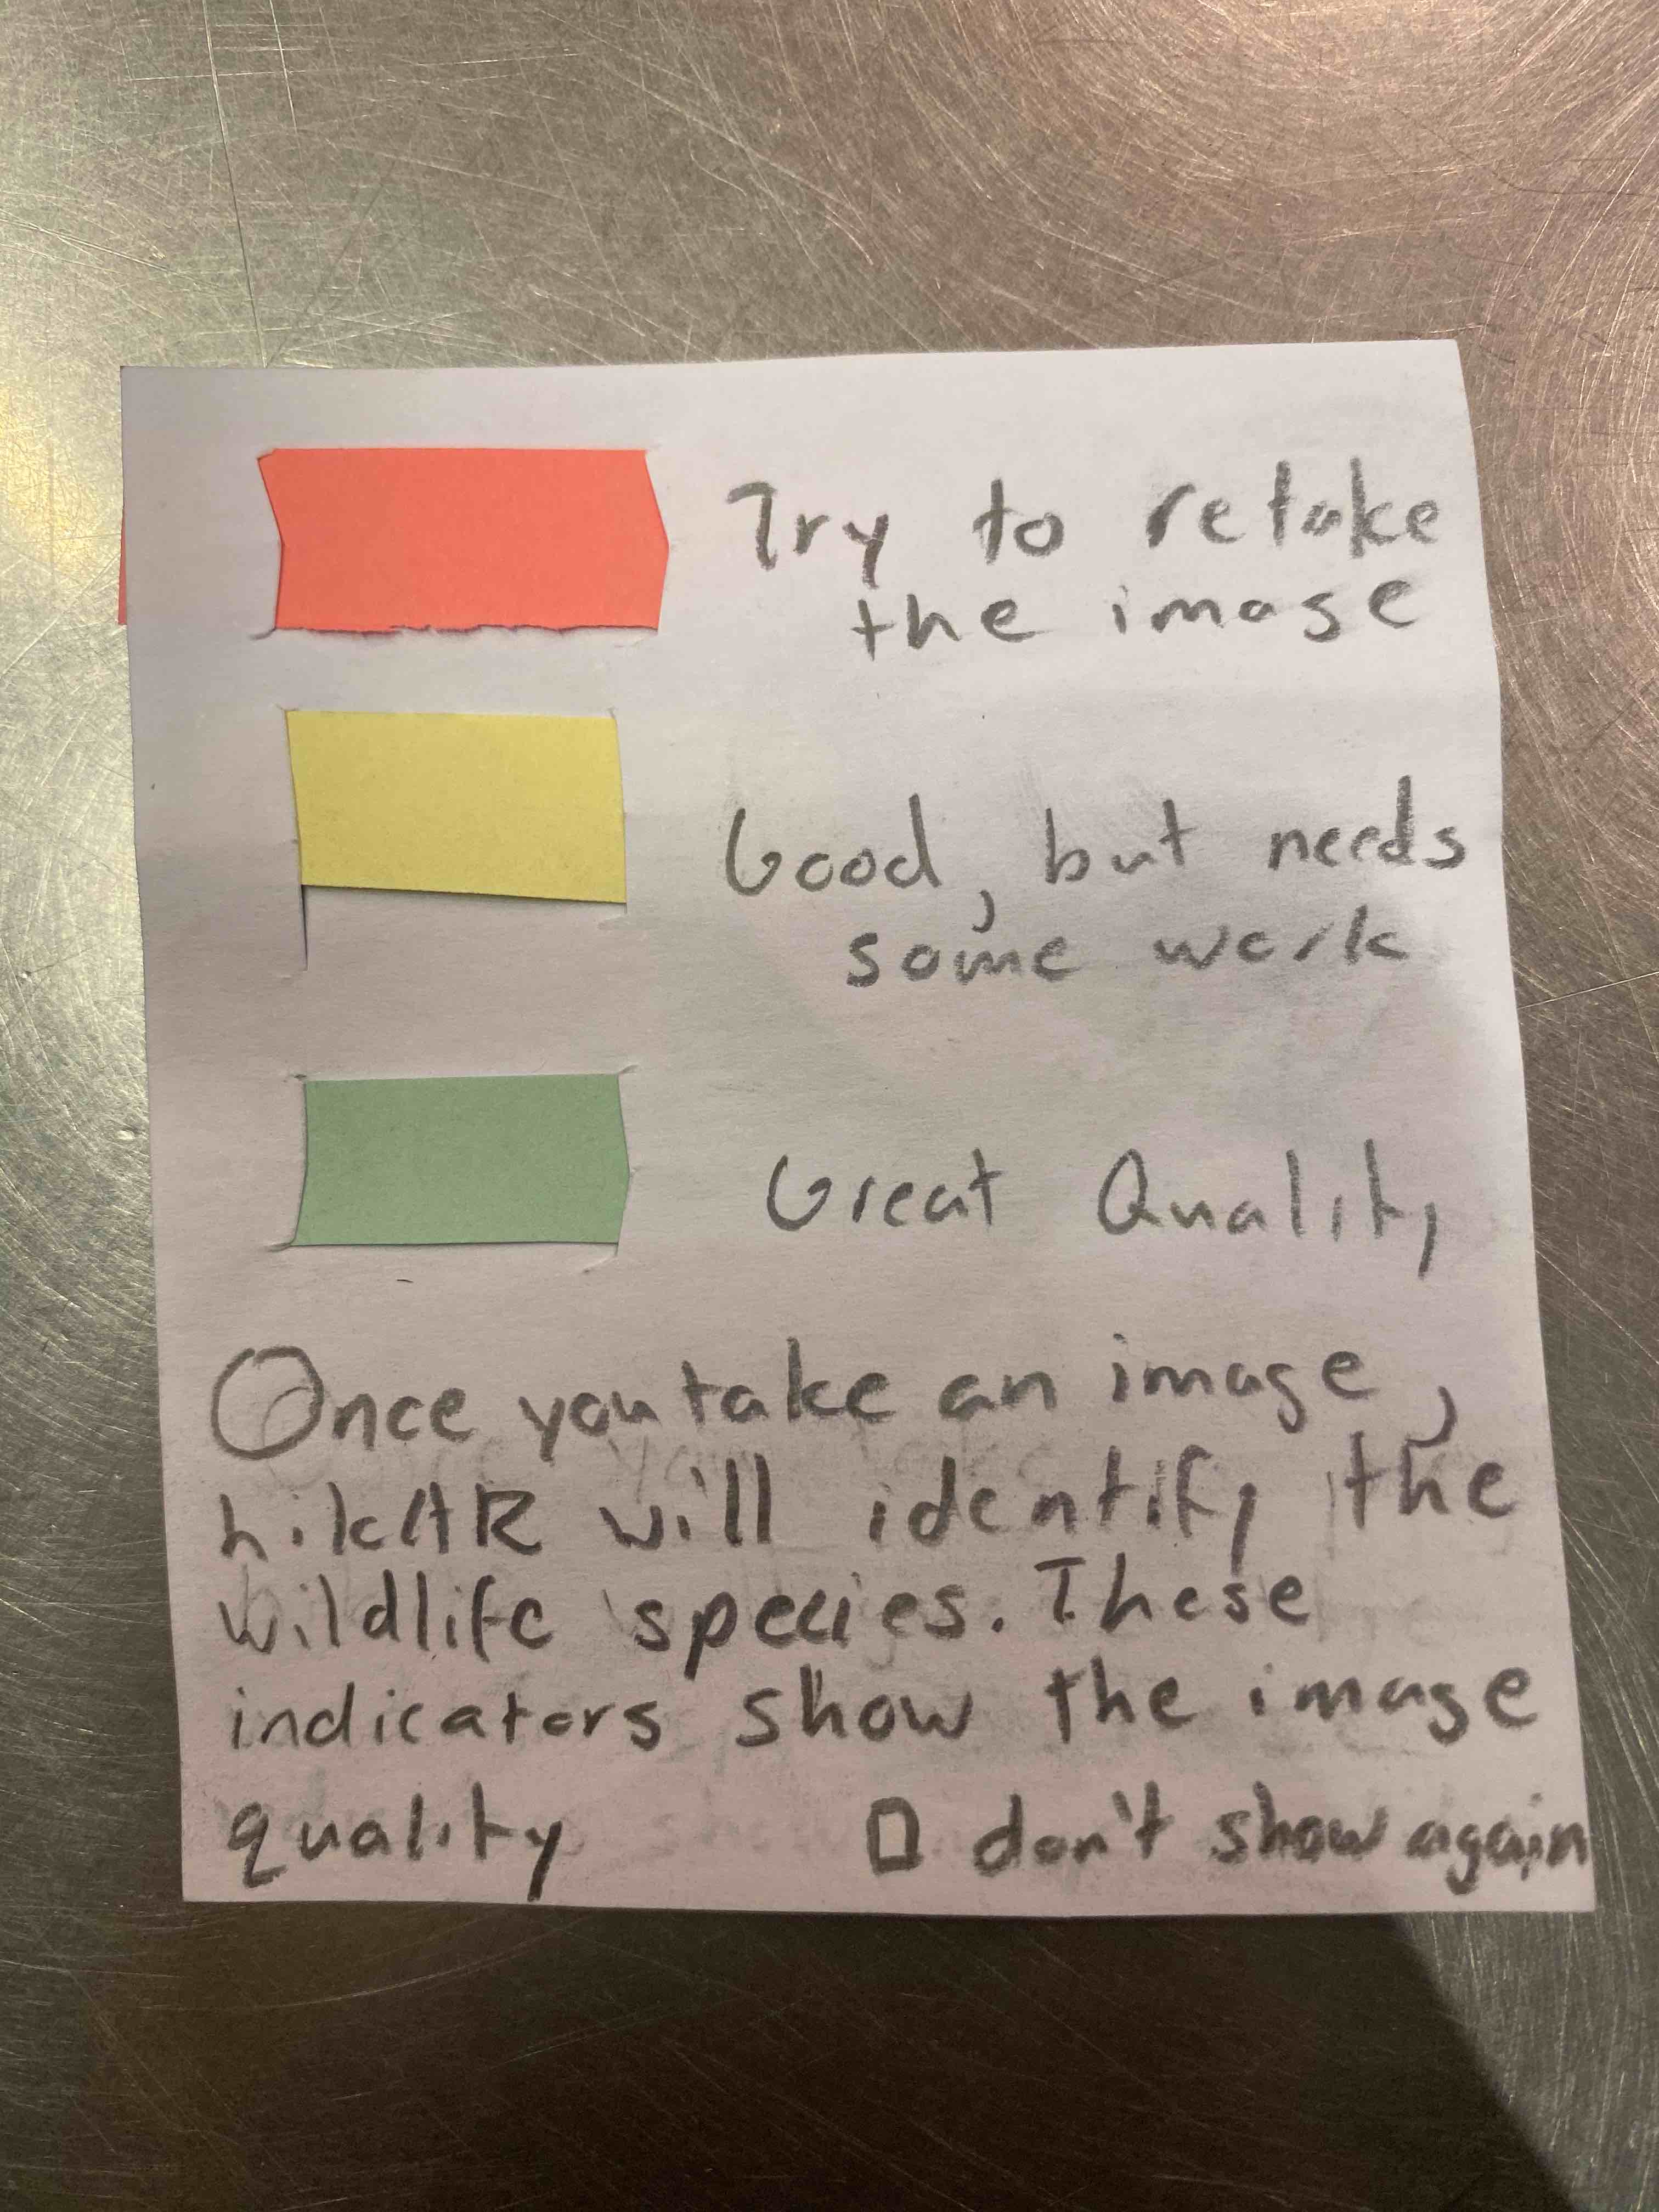 Try to retake
the image
Good, but needs
some work
Great Quality
Once you take an image,
hikAR will identify the
wildlife species. These
indicators show the image
quality
don't show again